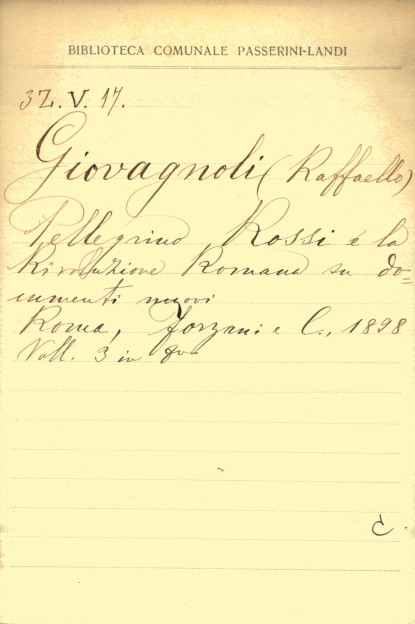 BIBLIOTECA COMUNALE PASSERINI-LANDI
3Z.V.17.
Giovagnoli (Raffaello)
Pellegrino Rossi e la
Rivoluzione Romana su do=
cumenti nuovi
Roma, Forzani e C., 1898
Voll. 3 in 8vo
C.